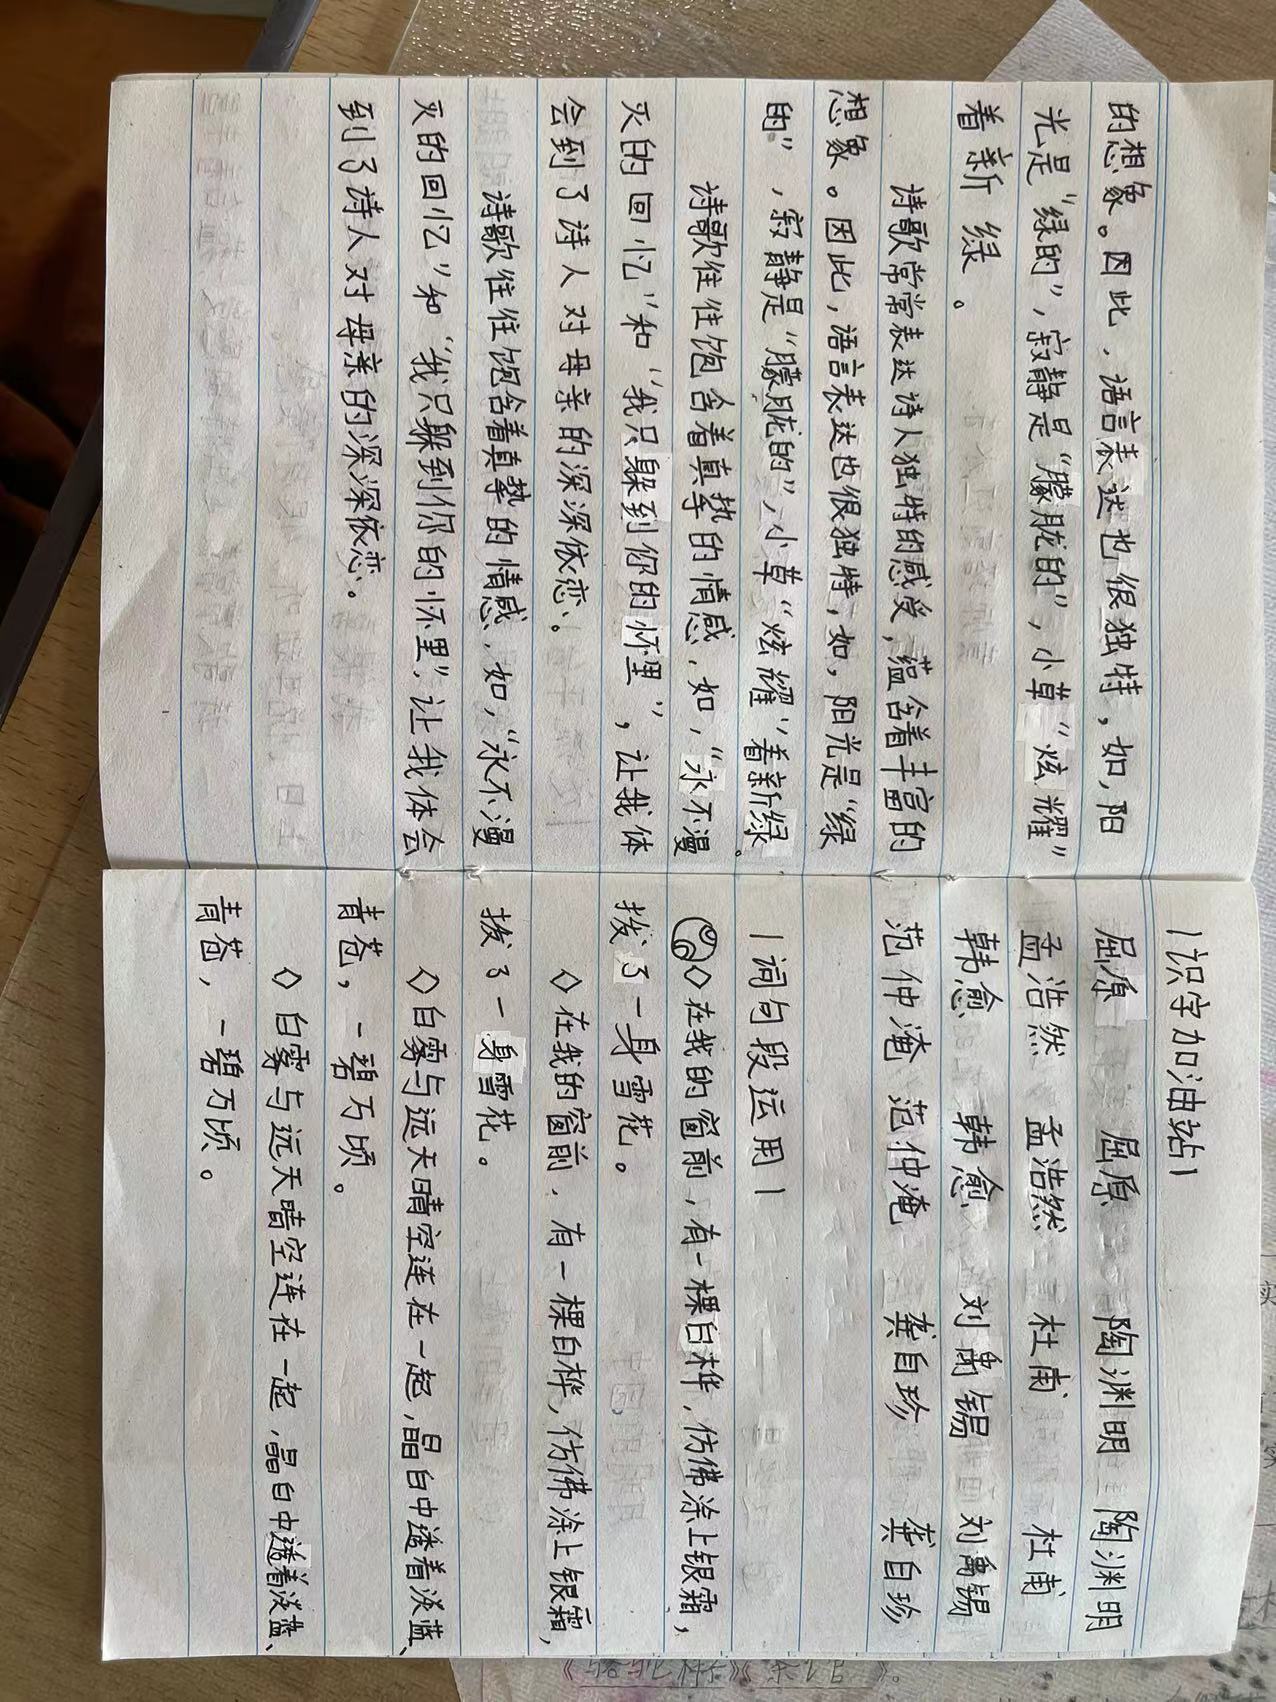 的想象。因此，语言表达也很独特，如，阳
光是“绿的”，寂静是“朦胧的”，小草“炫耀”
着新绿。
诗歌常常表达诗人独特的感受，蕴含着丰富的
想象。因此，语言表达也很独特，如，阳光是“绿
的”，寂静是“朦胧的”，小草“炫耀”着新绿。
诗歌往往饱含着真挚的情感，如，“永不漫
灭的回忆”和“我只躲到你的怀里”，让我体
会到了诗人对母亲的深深依恋。
诗歌往往饱含着真挚的情感，如，“永不漫
灭的回忆”和“我只躲到你的怀里”，让我体会
到了诗人对母亲的深深依恋。
|识字加油站|
屈原 屈原 陶渊明 陶渊明
孟浩然 孟浩然 杜甫 杜甫
韩愈 韩愈 刘禹锡 刘禹锡
范仲淹 范仲淹 龚自珍 龚自珍
|词句段运用|
◇在我的窗前，有一棵白桦，仿佛涂上银霜，
拨了一身雪花。
◇在我的窗前，有一棵白桦，仿佛涂上银霜，
拨了一身雪花。
◇白雾与远天晴空连在一起，晶白中透着淡蓝、
青苍，一碧万顷。
◇白雾与远天晴空连在一起，晶白中透着淡蓝、
青苍，一碧万顷。